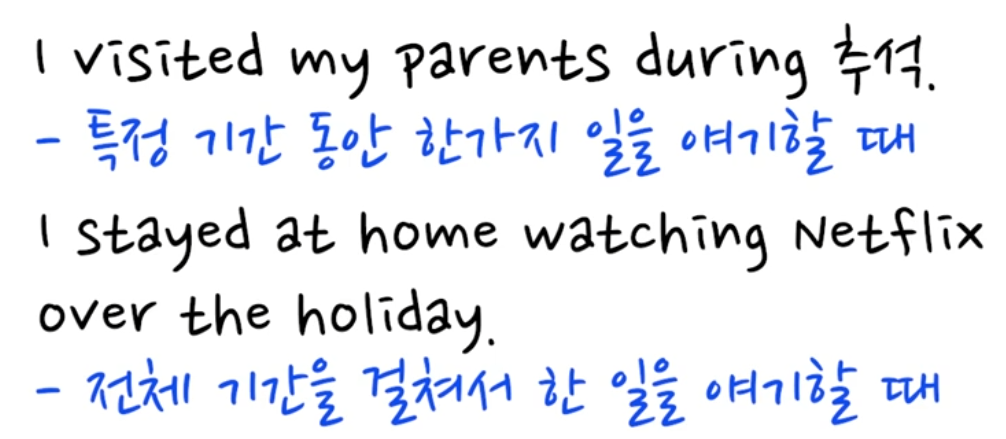 I visited my parents during 추석.
- 특정 기간 동안 한가지 일을 얘기할 때
I stayed at home watching Netflix
over the holiday.
- 전체 기간을 걸쳐서 한 일을 얘기할 때